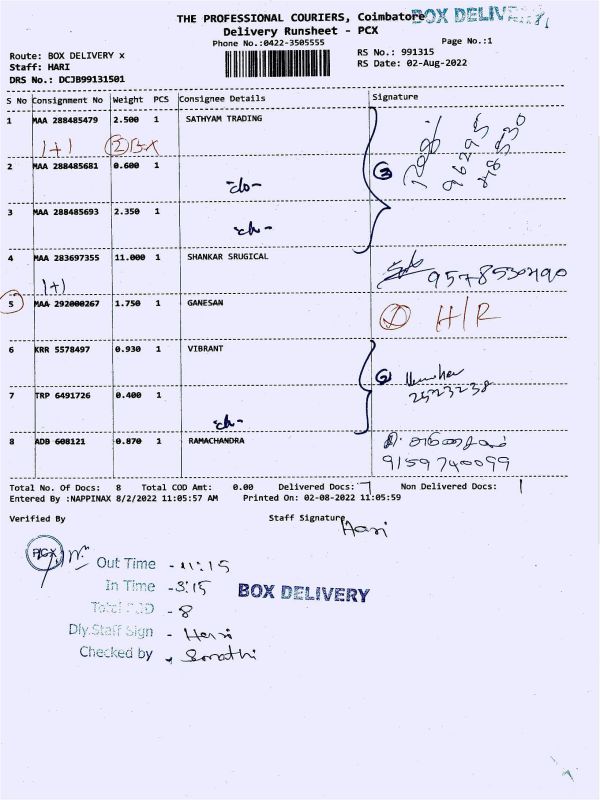 THE PROFESSIONAL COURIERS, Coimbatore
BOX DELIV
Delivery Runsheet - PCX
Phone No.:0422-3505555
Page No.:1
Route: BOX DELIVERY x
RS No.: 991315
Staff: HARI
RS Date: 02-Aug-2022
DRS No.: DCJB99131501
S No Consignment No Weight PCS Consignee Details Signature
1 MAA 288485479 2.500 1 SATHYAM TRADING
1+1
2 MAA 288485681 0.600 1
-do-
3
3 MAA 288485693 2.350 1
-do-
4 MAA 283697355 11.000 1 SHANKAR SRUGICAL
1+1
9578530490
5 MAA 292000267 1.750 1 GANESAN
H/R
6 KRR 5578497 0.930 1 VIBRANT
2
2523238
7 TRP 6491726 0.400 1
-do-
8 ADB 608121 0.870 1 RAMACHANDRA
9159740099
Total No. Of Docs: 8 Total COD Amt: 0.00 Delivered Docs: 7 Non Delivered Docs: 1
Entered By :NAPPINAX 8/2/2022 11:05:57 AM Printed On: 02-08-2022 11:05:59
Verified By
Staff Signature
Hari
PCX
Out Time - 11:15
In Time - 3:15
BOX DELIVERY
Total - 8
Dly.Staff Sign - Hari
Checked by